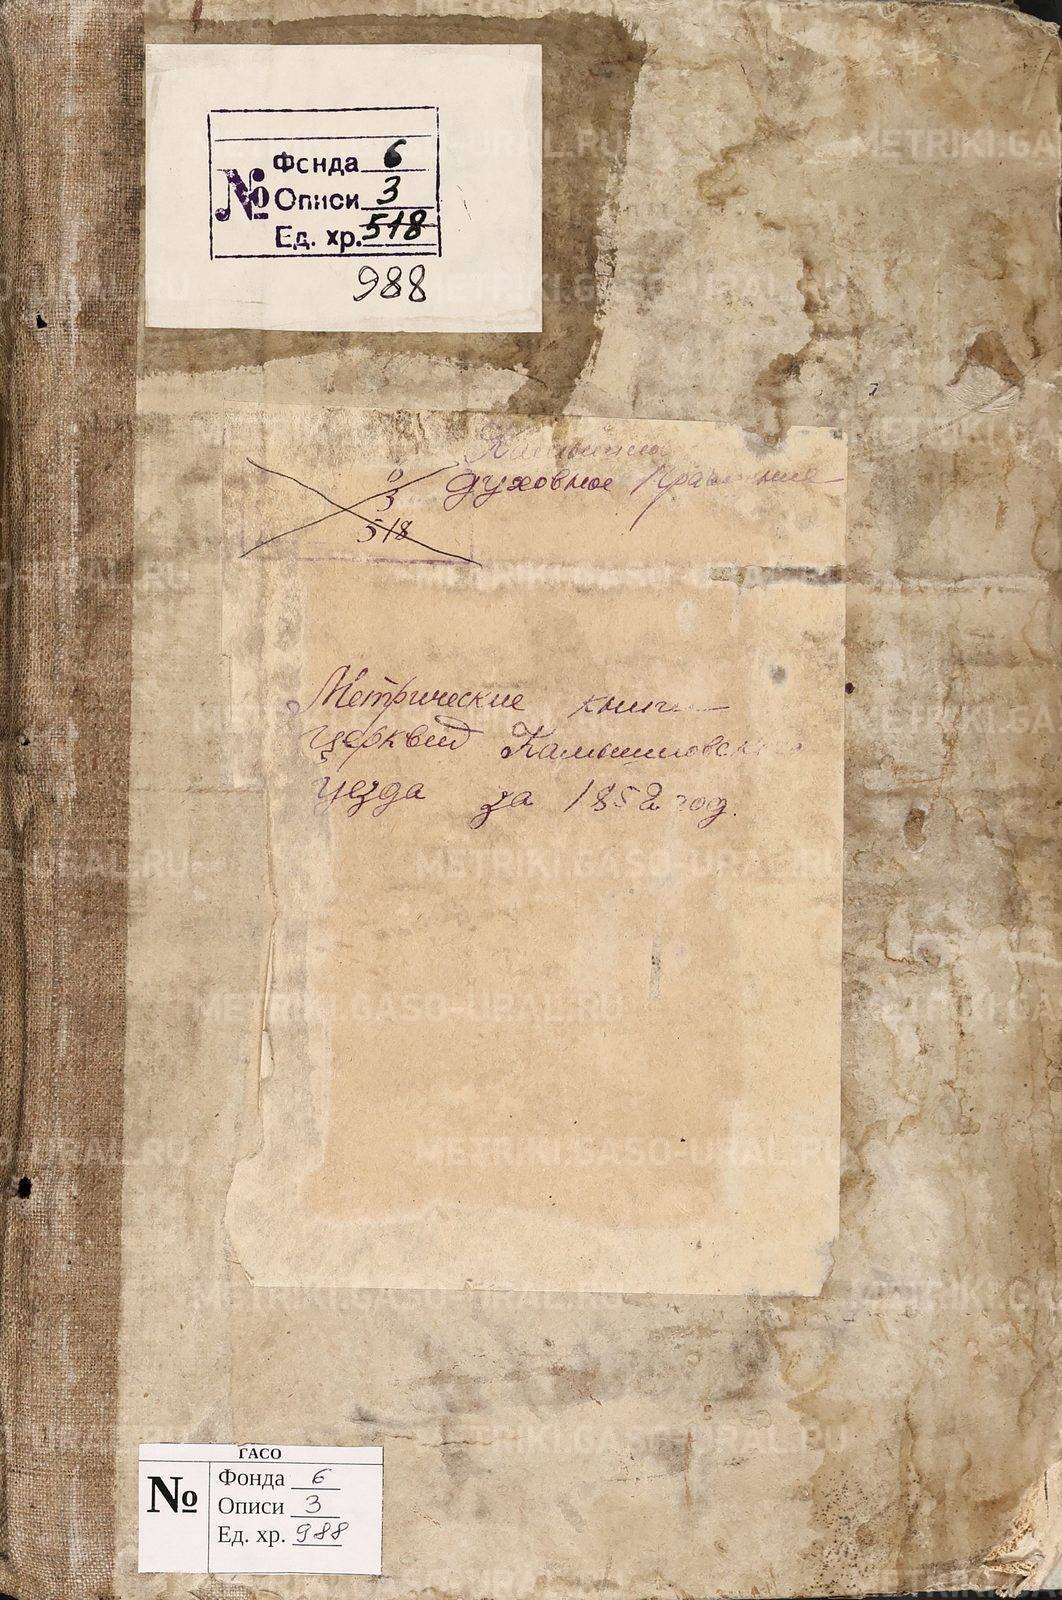 №
Фонда 6
Описи 3
Ед. хр. 518
988
6
3
518
духовное Правление
Метрические книги
церквей Камышловского
уезда за 1852 год.
ГАСО
№
Фонда 6
Описи 3
Ед. хр. 988
METRIKI.GASO-URAL.RU